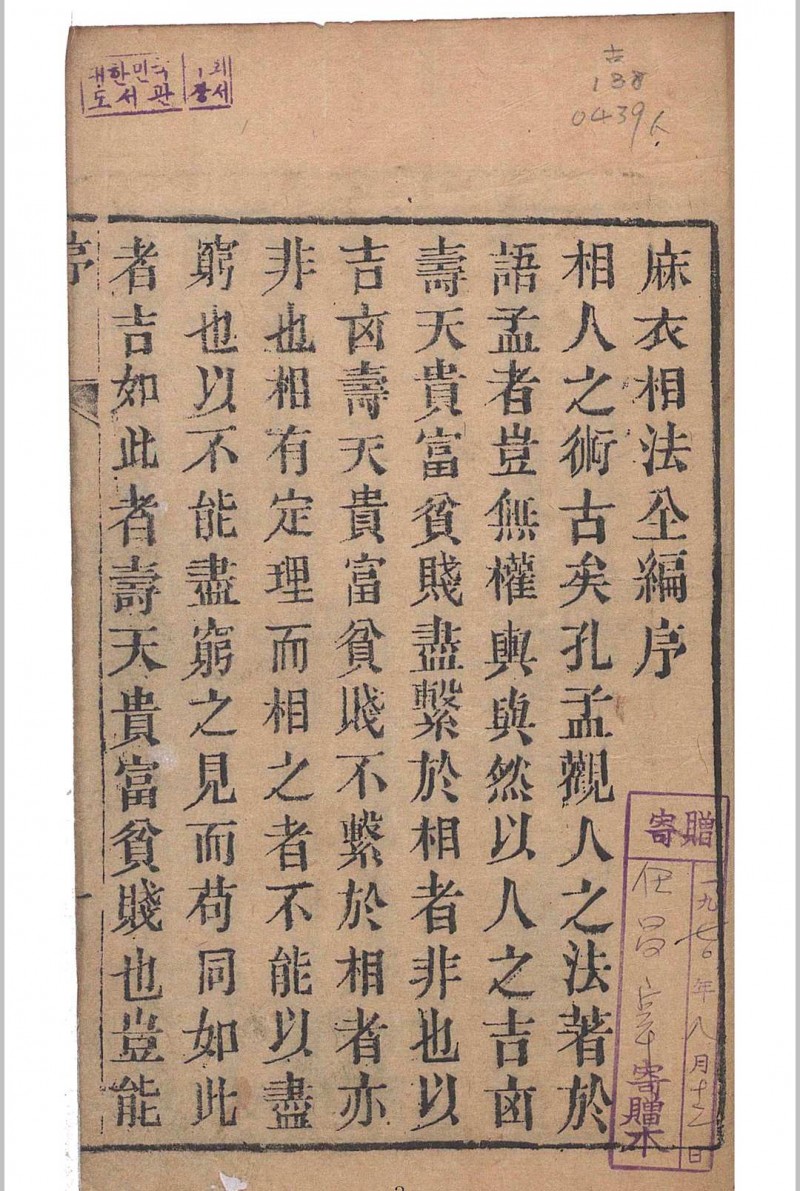 대한민국 국회
도서관 장서
古
138
0439
麻衣相法全編序
相人之術古矣孔孟觀人之法著於
語孟者豈無權輿與然以人之吉凶
壽夭貴富貧賤盡繫於相者非也以
吉凶壽夭貴富貧賤不繫於相者亦
非也相有定理而相之者不能以盡
窮也以不能盡窮之見而苟同如此
者吉如此者壽夭貴富貧賤也豈能
序
寄贈
一九七〇年八月十三日
寄贈本